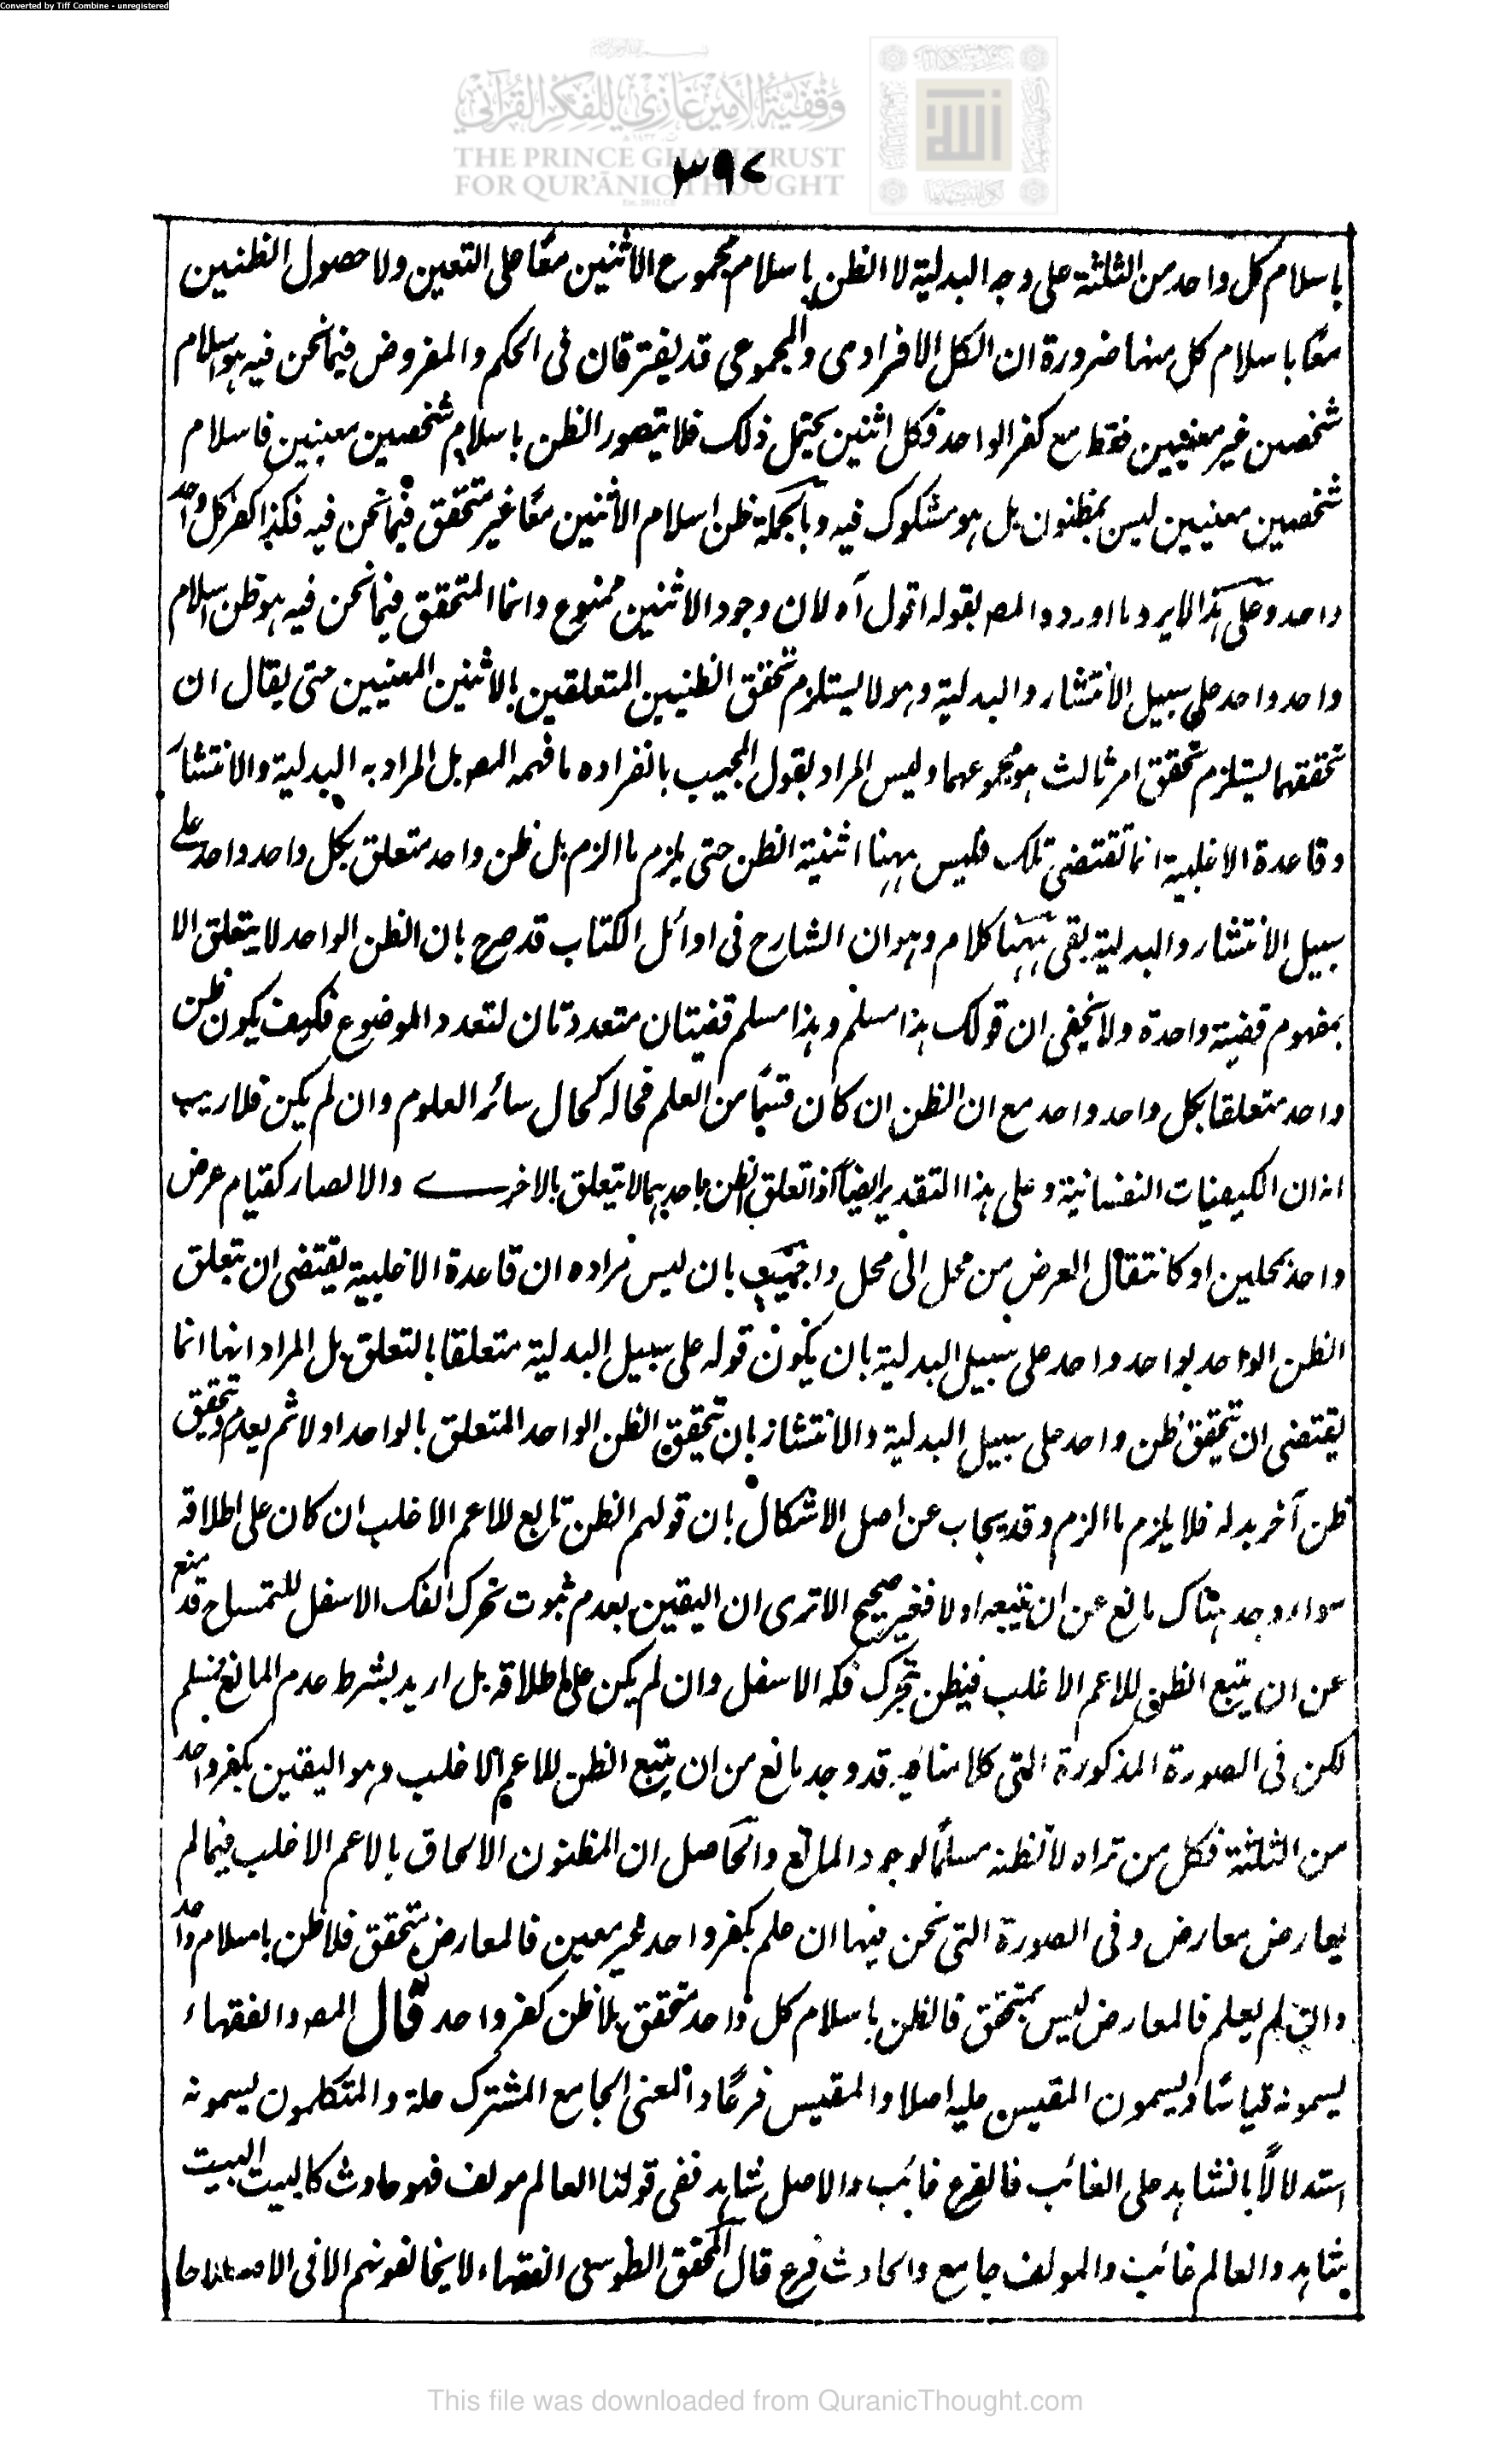 Converted by Tiff Combine - unregistered
وقفية الأمير غازي للفكر القرآني
THE PRINCE GHAZI TRUST
FOR QUR'ĀNIC THOUGHT
Est. 2012 CE
٣٩٧
باسلام كل واحد من الثلثة على وجه البدلية لا الظن باسلام مجموع الاثنين معًا على التعين ولا حصول الظنين
معًا باسلام كل منهما ضرورة ان الكل الافرادى والمجموعى قد يفترقان فى الحكم والمفروض فيما نحن فيه هو اسلام
شخصين غير معينين فقط مع كفر الواحد فكل اثنين يحتمل ذلك فلا يتصور الظن باسلام شخصين معينين فاسلام
شخصين معينين ليس بمظنون بل هو مشكوك فيه وبالجملة ظن اسلام الاثنين معًا غير متحقق فيما نحن فيه فكذا كفر كل واحد
واحد وعلى هذا لا يرد ما اورده المصـ بقوله اقول آه لان وجود الاثنين ممنوع وانما المتحقق فيما نحن فيه هو ظن اسلام
واحد واحد على سبيل الانتشار والبدلية وهو لا يستلزم تحقق الظنين المتعلقين بالاثنين المعينين حتى يقال ان
تحققهما يستلزم تحقق امر ثالث هو مجموعهما وليس المراد بقول المجيب بانفراده ما فهمه المصـ بل المراد به البدلية والانتشار
وقاعدة الاغلبية انما تقتضى تلك فليس ههنا اثنية الظن حتى يلزم ما الزم بل ظن واحد متعلق بكل واحد واحد على
سبيل الانتشار والبدلية بقى ههنا كلام وهو ان الشارح فى اوائل الكتاب قد صرح بان الظن الواحد لا يتعلق الا
بمفهوم قضية واحدة ولا يخفى ان قولك هذا مسلم وهذا مسلم قضيتان متعددتان لتعدد الموضوع فكيف يكون ظن
واحد متعلقا بكل واحد واحد مع ان الظن ان كان قسمًا من العلم فحاله كحال سائر العلوم وان لم يكن فلا ريب
انه ان الكيفيات النفسانية وعلى هذا التقدير ايضًا اذا تعلق الظن باحدهما لا يتعلق بالاخرى والا لصار كقيام عرض
واحد بمحلين او كانتقال العرض من محل الى محل واجيب بان ليس مراده ان قاعدة الاغلبية يقتضى ان يتعلق
الظن الواحد بواحد واحد على سبيل البدلية بان يكون قوله على سبيل البدلية متعلقا بالتعلق بل المراد انها انما
يقتضى ان يتحقق ظن واحد على سبيل البدلية والانتشار بان يتحقق الظن الواحد المتعلق بالواحد اولا ثم يعدم ويتحقق
ظن آخر بدله فلا يلزم ما الزم وقد يجاب عن اصل الاشكال بان قولهم الظن تابع للاعم الاغلب ان كان على اطلاقه
سواء وجد هناك مانع عن ان يتبعه اولا فغير صحيح الا ترى ان اليقين بعدم ثبوت تحرك الفك الاسفل للتمساح قد منع
عن ان يتبع الظن للاعم الاغلب فيظن تحرك فكه الاسفل وان لم يكن على اطلاقه بل اريد بشرط عدم المانع فمسلم
لكن فى الصورة المذكورة التى كلامنا فيه قد وجد مانع من ان يتبع الظن للاعم الاغلب وهو اليقين بكفر واحد
من الثلثة فكل من تراه لا تظنه مسلمًا لوجود المانع والحاصل ان المظنون الالحاق بالاعم الاغلب فيما لم
يعارض معارض وفى الصورة التى نحن فيها ان علم بكفر واحد غير معين فالمعارض متحقق فلا ظن باسلام واحد
وان لم يعلم فالمعارض ليس بمتحقق فالظن باسلام كل واحد متحقق بلا ظن كفر واحد قال المصـ والفقهاء
يسمونه قياسًا ويسمون المقيس عليه اصلا والمقيس فرعًا والمعنى الجامع المشترك علة والمتكلمون يسمونه
استدلالًا بالشاهد على الغائب فالفرع غائب والاصل شاهد ففى قولنا العالم مولف فهو حادث كالبيت البيت
شاهد والعالم غائب والمولف جامع والحادث فرع قال المحقق الطوسى الفقهاء لا يخالفونهم الا فى الاصطلاحا
This file was downloaded from QuranicThought.com